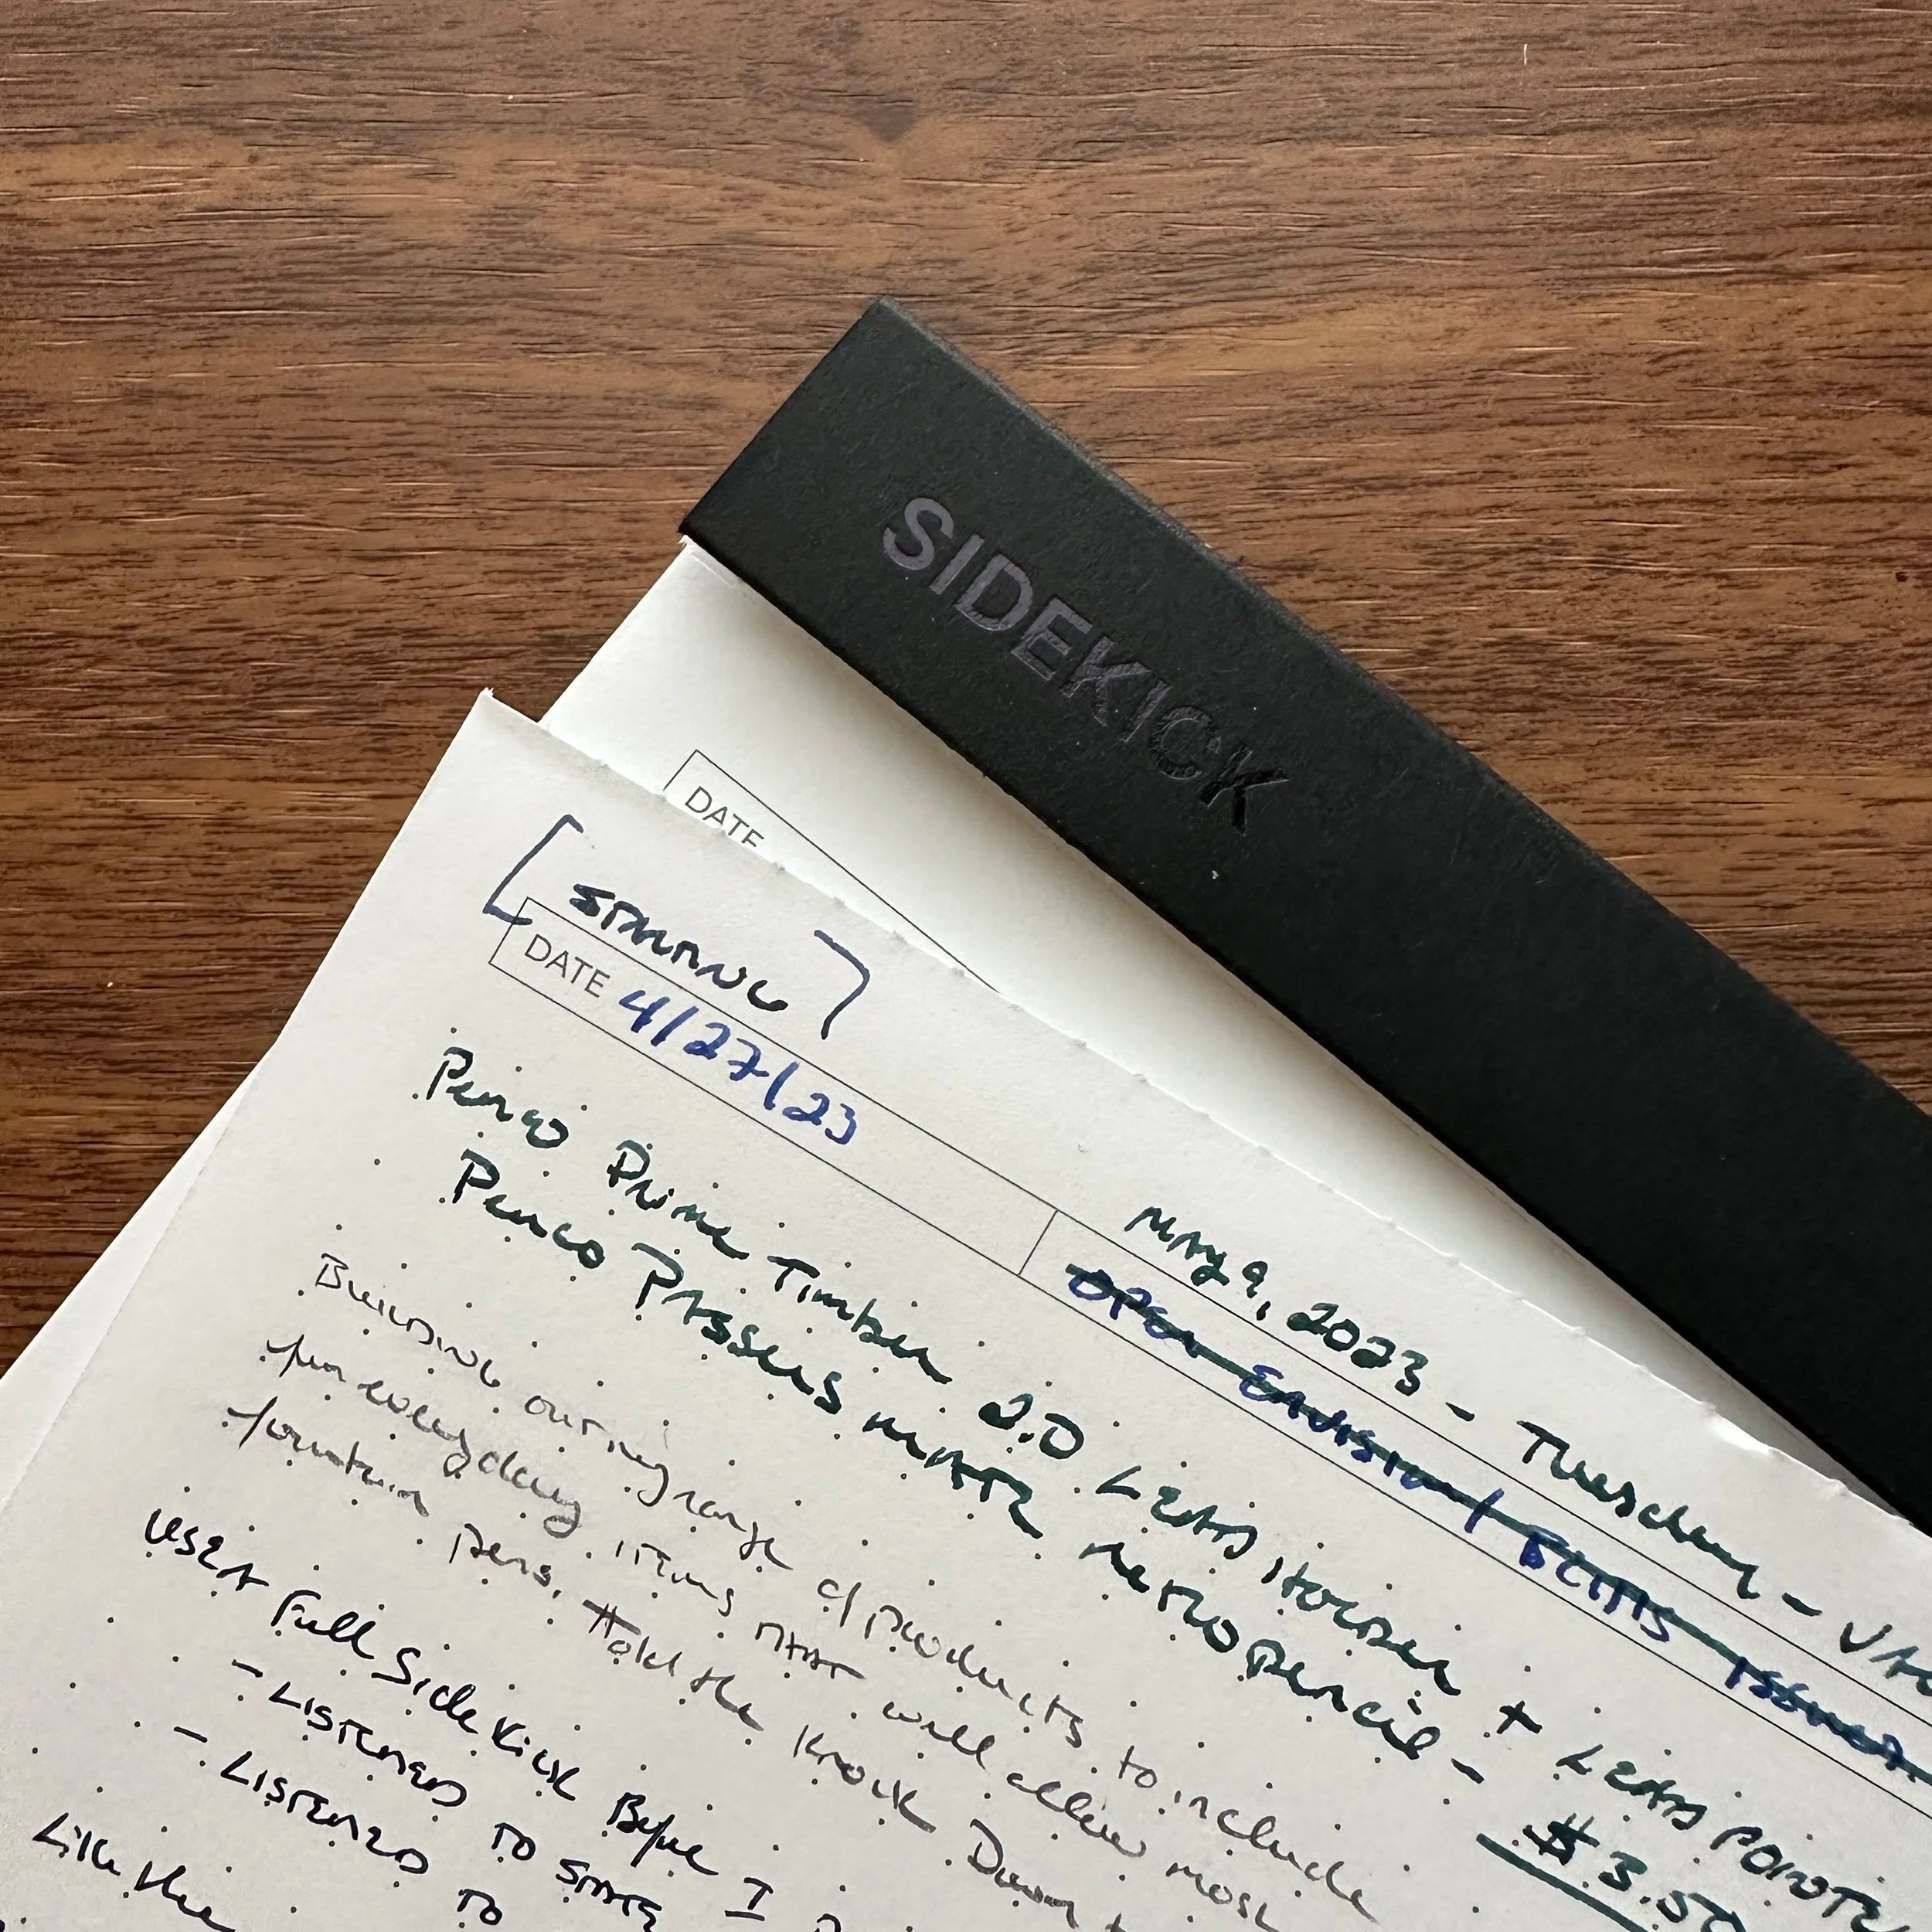 SIDEKICK
DATE
[STARTING]
DATE 4/27/23
May 9, 2023 - Tuesday -
Penco Prime Timber 2.0 Lead Holder + Lead Pointer
Penco Passers Mate Metro Pencil - $3.50
Building our new range of products to include
for everyday items that will allow most
fountain pens. Hold the Knock Down
Used A Full Sidekick Before I
- Listened to some
- Listened to
Like the